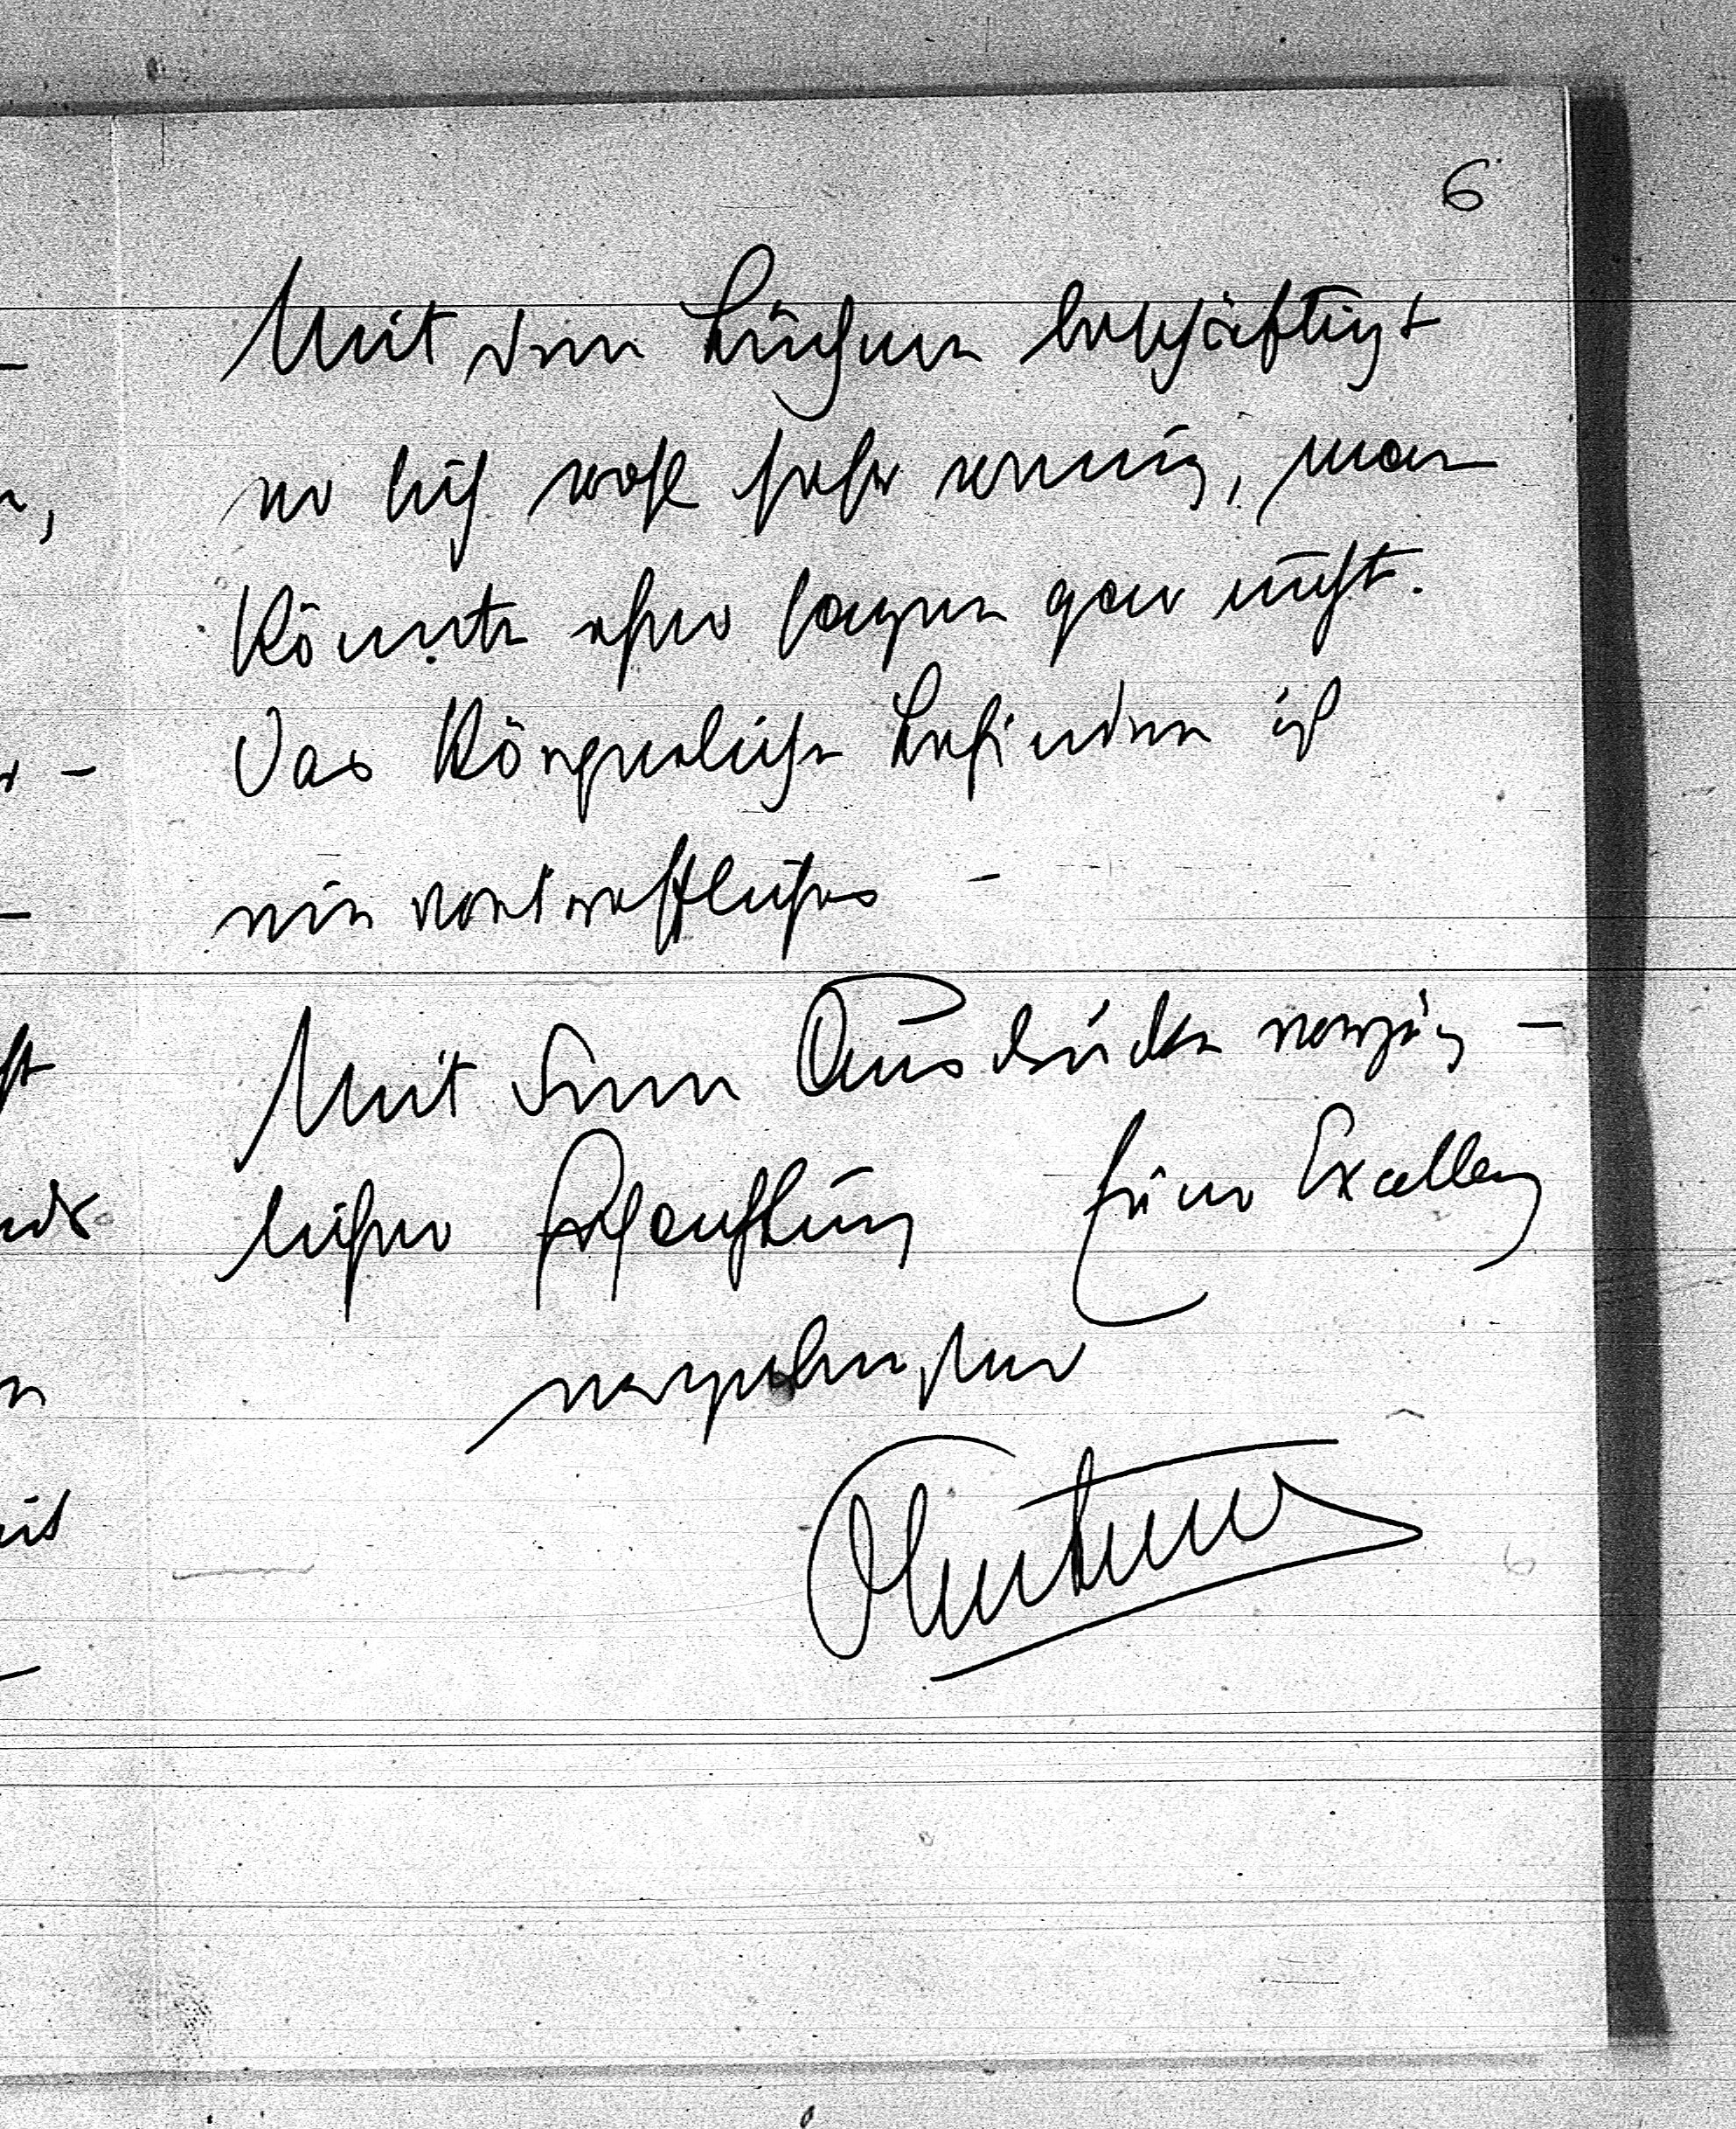 6
Mit den Büchern beschäftigt
er sich wohl sehr wenig, man
könnte eher sagen gar nicht.
Das körperliche Befinden ist
ein vortreffliches –
Mit dem Ausdrucke vorzüg –
licher Hochachtung Euer Excellenz
ergebenster